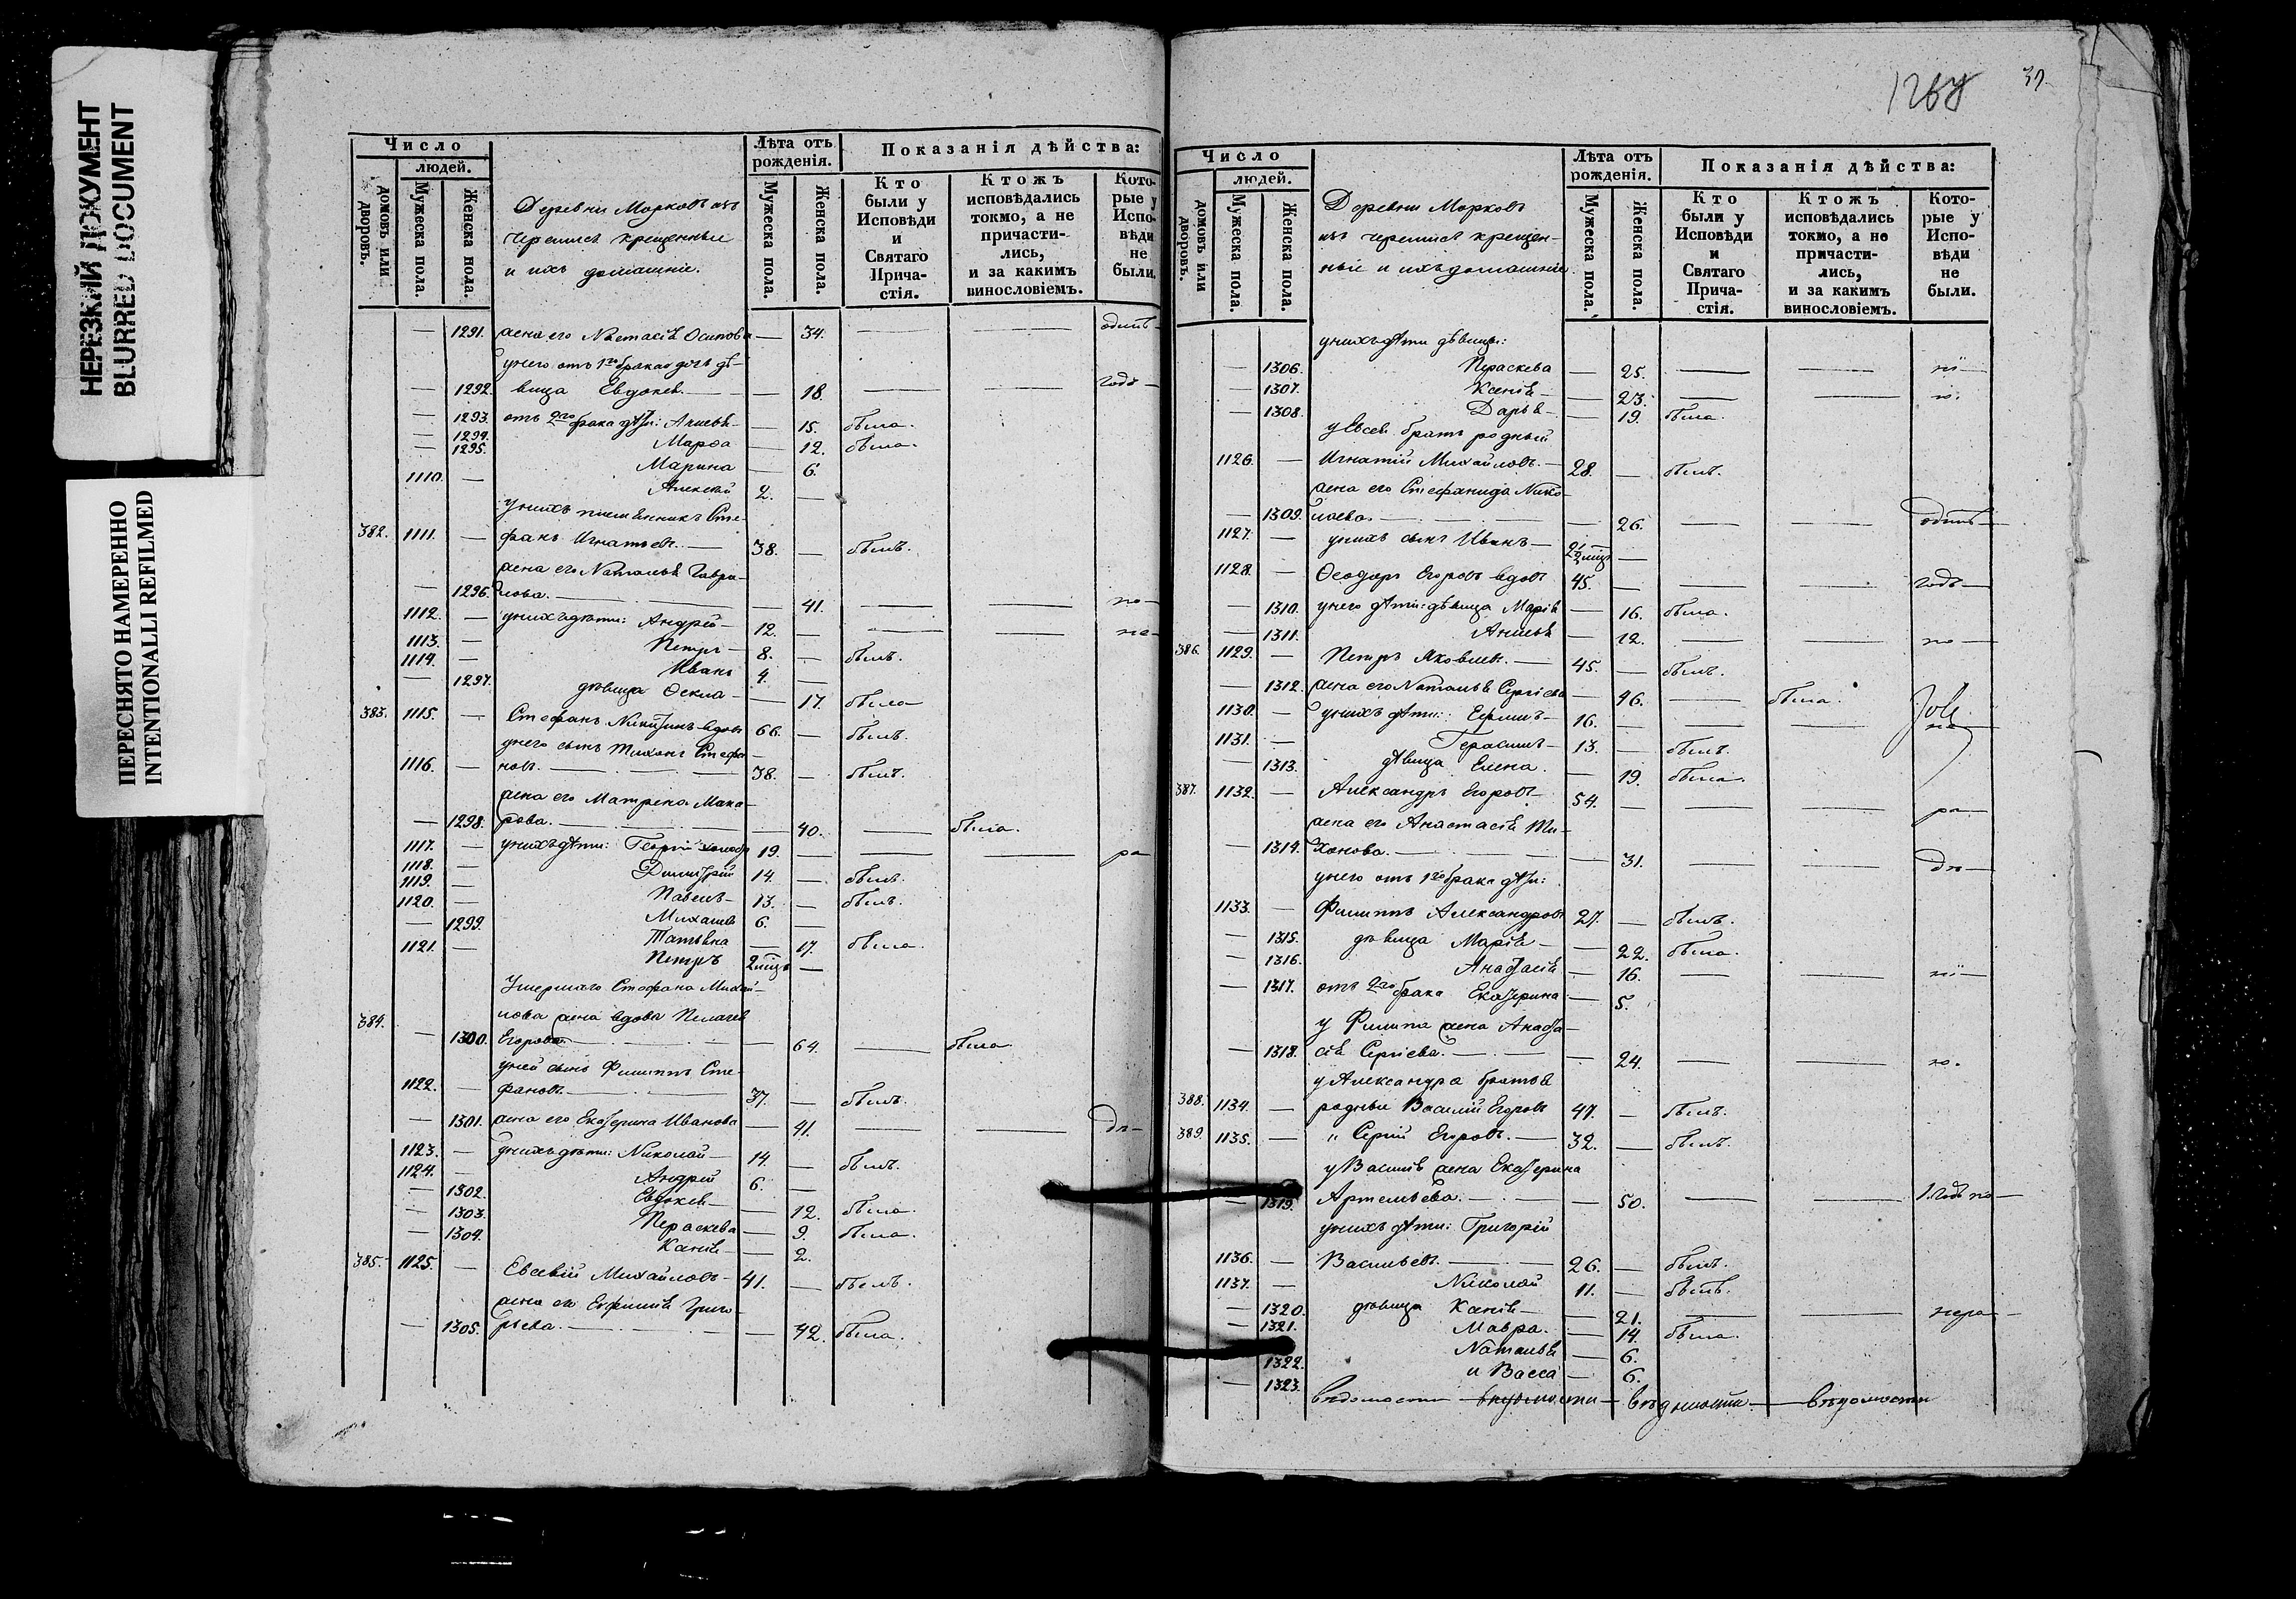 НЕРЕЗКИЙ ДОКУМЕНТ
BLURRED DOCUMENT
ПЕРЕСНЯТО НАМЕРЕННО
INTENTIONALLI REFILMED
Число
людей.
домовъ или дворовъ.
Мужеска пола.
Женска пола.
Деревни Марковъ изъ
черемисъ крещенные
и ихъ домашніе.
Лѣта отъ рожденія.
Мужеска пола.
Женска пола.
Показанія дѣйства:
Кто были у Исповѣди и Святаго Причастія.
Ктожъ исповѣдались токмо, а не причастились, и за какимъ винословіемъ.
Которые у Исповѣди не были.
— 1291. жена его Настасія Осипова — 34.
у него отъ 1го брака дочь дѣ-
— 1292. вица Евдокія — 18. годъ
— 1293. отъ 2го брака дѣти: — 15. была.
— 1294. Марѳа — 12. была.
— 1295. Марина — 6.
1110. — Алексѣй 2. —
у нихъ племянникъ Сте-
382. 1111. — фанъ Игнатьевъ. — 38. — былъ.
жена его Наталья Гаври-
— 1296. лова. — 41. по—
1112. — у нихъ дѣти: Андрей 12. —
1113. — Петръ 8. — былъ.
1114. — Иванъ 4. —
— 1297. дѣвица Ѳекла — 17. была
383. 1115. — Стефанъ Никитинъ вдовъ 66. — былъ.
у него сынъ Тихонъ Стефа-
1116. — новъ. 38. — былъ.
жена его Матрена Мака-
— 1298. рова. — 40. — была.
1117. — у нихъ дѣти: Георгій 19. — ра
1118. — Димитрій 14. — былъ.
1119. — Павелъ 13. — былъ.
1120. — Михаилъ 6. —
— 1299. Татьяна — 17. была.
1121. — Петръ 2 —
Умершаго Стефана Михай-
384. лова жена вдова Пелагея
— 1300. Егорова. — 64. — была
у ней сынъ Филиппъ Сте-
1122. — фановъ. 37. — былъ.
— 1301. жена его Екатерина Иванова — 41.
1123. — у нихъ дѣти: Николай 14. — былъ.
1124. — Андрей 6. —
— 1302. Евдокія — 12. была.
— 1303. Параскева — 9. была.
— 1304. Ксенія — 2.
385. 1125. — Евсевій Михайловъ 41. — былъ.
жена его Евфимія Григо-
— 1305. рьева. — 42. была.
39.
Число
людей.
домовъ или дворовъ.
Мужеска пола.
Женска пола.
Деревни Марковъ
изъ черемисъ крещен-
ные и ихъ домашніе
Лѣта отъ рожденія.
Мужеска пола.
Женска пола.
Показанія дѣйства:
Кто были у Исповѣди и Святаго Причастія.
Ктожъ исповѣдались токмо, а не причастились, и за какимъ винословіемъ.
Которые у Исповѣди не были.
у нихъ дѣти дѣвицы:
— 1306. Параскева — 25.
— 1307. Ксенія — 23.
— 1308. Дарья — 19. была
у Евсевія братъ родный
1126. — Игнатій Михайловъ. — 28. — былъ.
жена его Стефанида Нико-
— 1309. лаева. — 26.
1127. — у нихъ сынъ Иванъ —
1128. — Ѳеодоръ Егоровъ вдовъ 45. — годъ
— 1310. у него дѣти: дѣвица Марія — 16. была.
— 1311. — 12. по —
386. 1129. — Петръ Яковлевъ. — 45. — былъ.
— 1312. жена его Наталья Сергіева — 46. — была.
1130. — у нихъ дѣти: Ефимъ 16. —
1131. — Герасимъ 13. — былъ.
— 1313. дѣвица Елена. — 19. была.
387. 1132. — Александръ Егоровъ 54. — ра
жена его Анастасія Ти-
— 1314. хонова. — 31.
у него отъ 1го брака дѣти:
1133. — Филиппъ Александровъ 27. — былъ.
— 1315. дѣвица Марія — 22. была.
— 1316. Анастасія — 16.
— 1317. отъ 2го брака Екатерина — 5.
у Филиппа жена Анаста-
— 1318. сія Сергіева. — 24.
у Александра братья
388. 1134. — родные Василій Егоровъ 47. — былъ.
389. 1135. — " Сергій Егоровъ. — 32. — былъ.
у Василія жена Екатерина
— 1319. Артемьева. — 50. 1. годъ по —
у нихъ дѣти: Григорій
1136. — Васильевъ. 26. — былъ.
1137. — Николай 11. — былъ.
— 1320. дѣвица Ксенія — 21. — нера
— 1321. Мавра. — 14. была.
1322. Наталья — 6.
— 1323. и Васса — 6.
вѣдомости